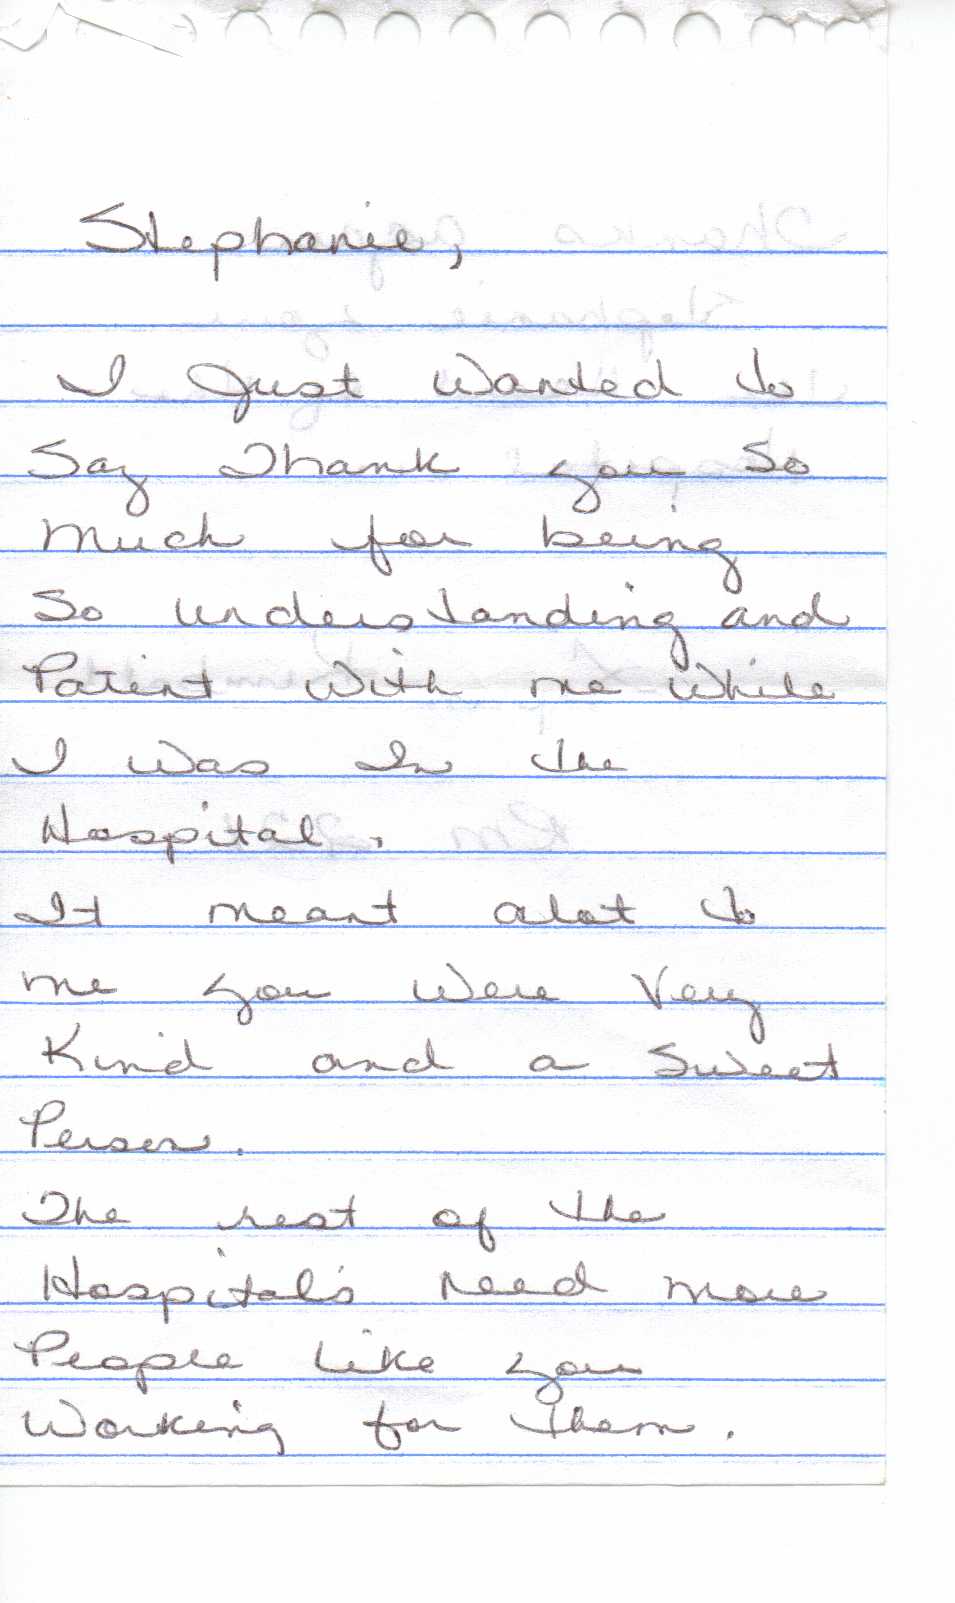 Stephanie,
I Just Wanted to
Say Thank you So
Much for being
So understanding and
Patient With me While
I Was In the
Hospital.
It meant alot to
me you Were Very
Kind and a Sweet
Person.
The rest of the
Hospital's need more
People Like you
Working for them.